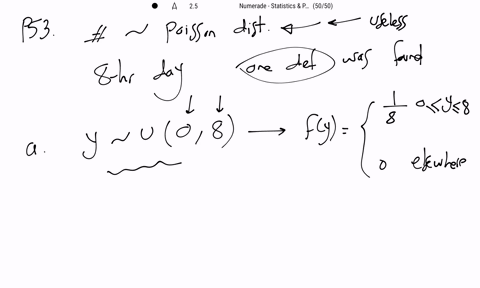 2.5 Numerade - Statistics & P... (50/50)
P53. # ~ Poisson dist. ← ← useless
8-hr day one def was found
a. y ~ U (0, 8) → f(y) = { 1/8 0≤y≤8
0 elsewhere